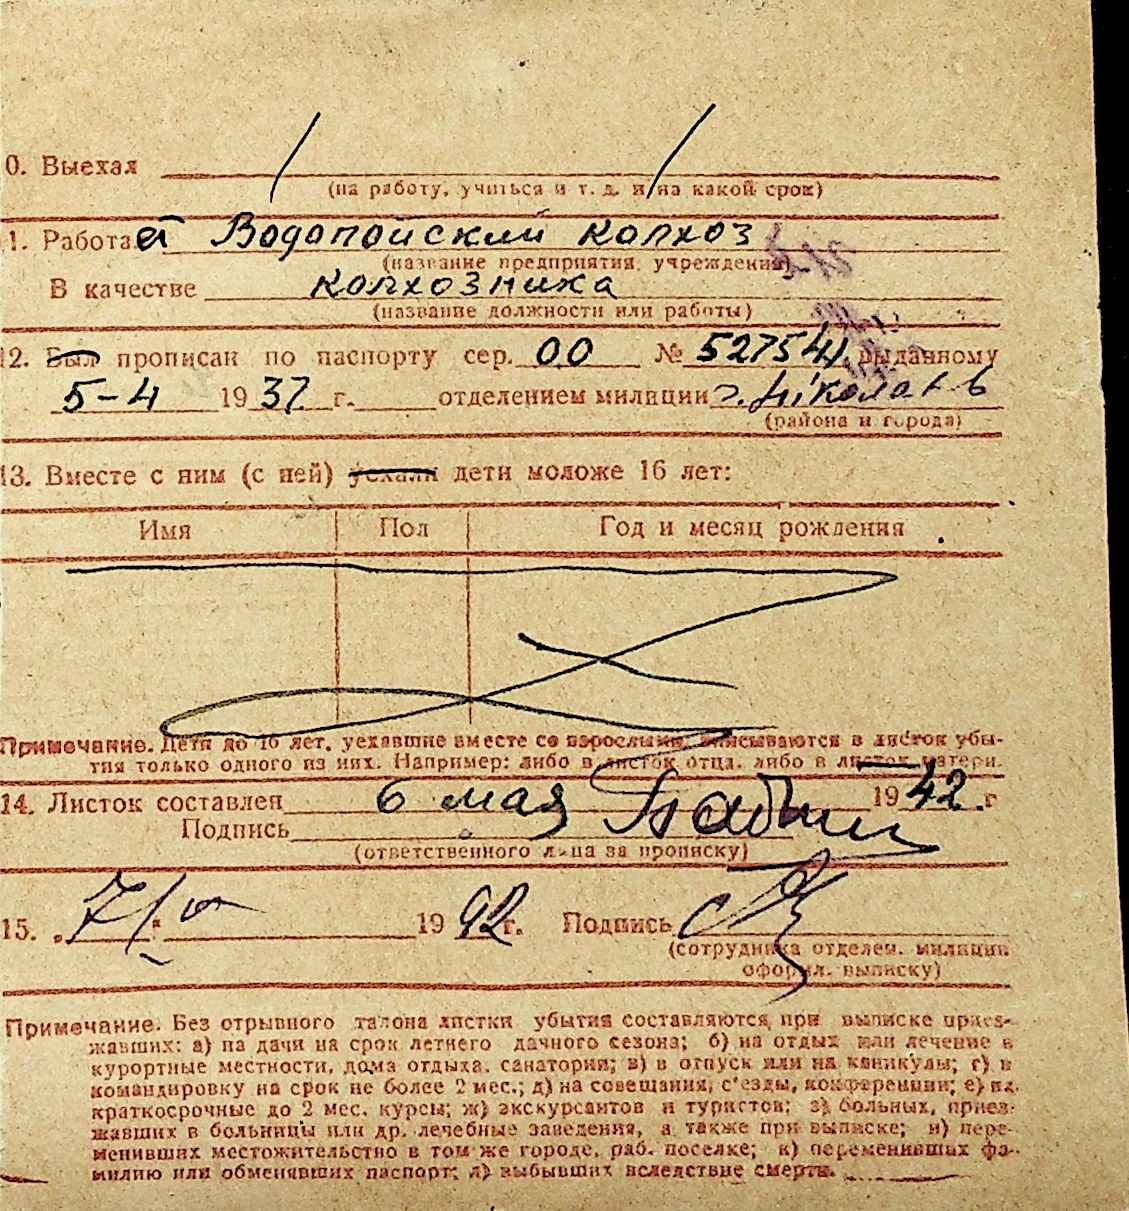 0. Выехал
(на работу, учиться и т. д. и на какой срок)
1. Работает Водопойский колхоз
(название предприятия, учреждения)
В качестве колхозника
(название должности или работы)
12. Был прописан по паспорту сер. 00 № 527541 выданному
5-4 1937 г. отделением милиции г. Ніколаев
(района и города)
13. Вместе с ним (с ней) уехали дети моложе 16 лет:
Имя Пол Год и месяц рождения
Примечание. Дети до 16 лет, уехавшие вместе со взрослыми, вписываются в листок убы-
тия только одного из них. Например: либо в листок отца, либо в листок матери.
14. Листок составлен 6 мая 1942 г
Подпись
(ответственного лица за прописку)
15. 7/V 1942 г. Подпись
(сотрудника отделен. милиции
оформл. выписку)
Примечание. Без отрывного талона листки убытия составляются при выписке приез-
жавших: а) на дачи на срок летнего дачного сезона; б) на отдых или лечение в
курортные местности, дома отдыха, санатории; в) в отпуск или на каникулы; г) в
командировку на срок не более 2 мес.; д) на совещания, с'езды, конференции; е) на
краткосрочные до 2 мес. курсы; ж) экскурсантов и туристов; з) больных, приез-
жавших в больницы или др. лечебные заведения, а также при выписке; и) пере-
менивших местожительство в том же городе, раб. поселке; к) переменивших фа-
милию или обменявших паспорт; л) выбывших вследствие смерти.